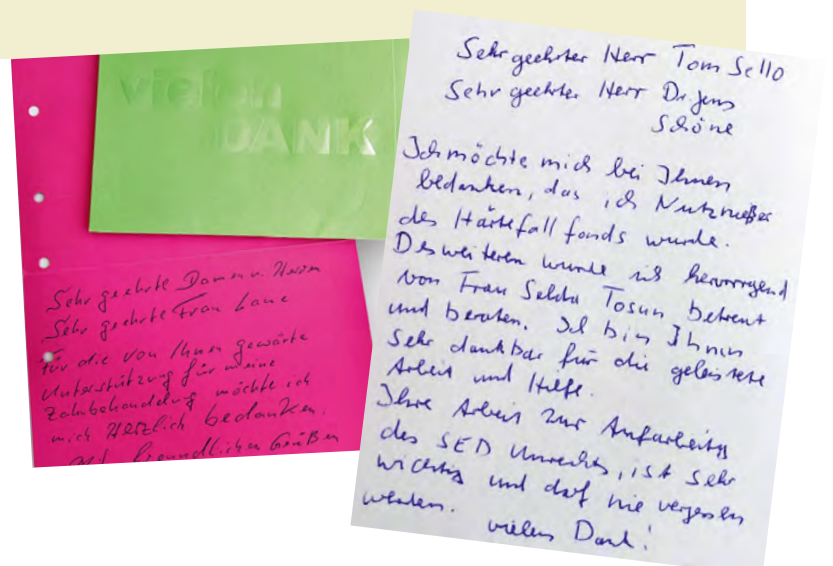 vielen
DANK
Sehr geehrte Damen u. Herren
Sehr geehrte Frau
Für die von Ihnen gewärte
Unterstützung für meine
Zahnbehandelung möchte ich
mich Herzlich bedanken.
Mit freundlichen Grüßen
Sehr geehrter Herr Tom Sello
Sehr geehrter Herr Dr Jens
Schöne
Ich möchte mich bei Ihnen
bedanken, das ich Nutznießer
des Härtefallfonds wurde.
Desweiteren wurde ich hervorragend
von Frau Selda Tosun betreut
und beraten. Ich bin Ihnen
sehr dankbar für die geleistete
Arbeit und Hilfe.
Ihre Arbeit zur Aufarbeitung
des SED Unrechts, ist sehr
wichtig und darf nie vergessen
werden. vielen Dank!